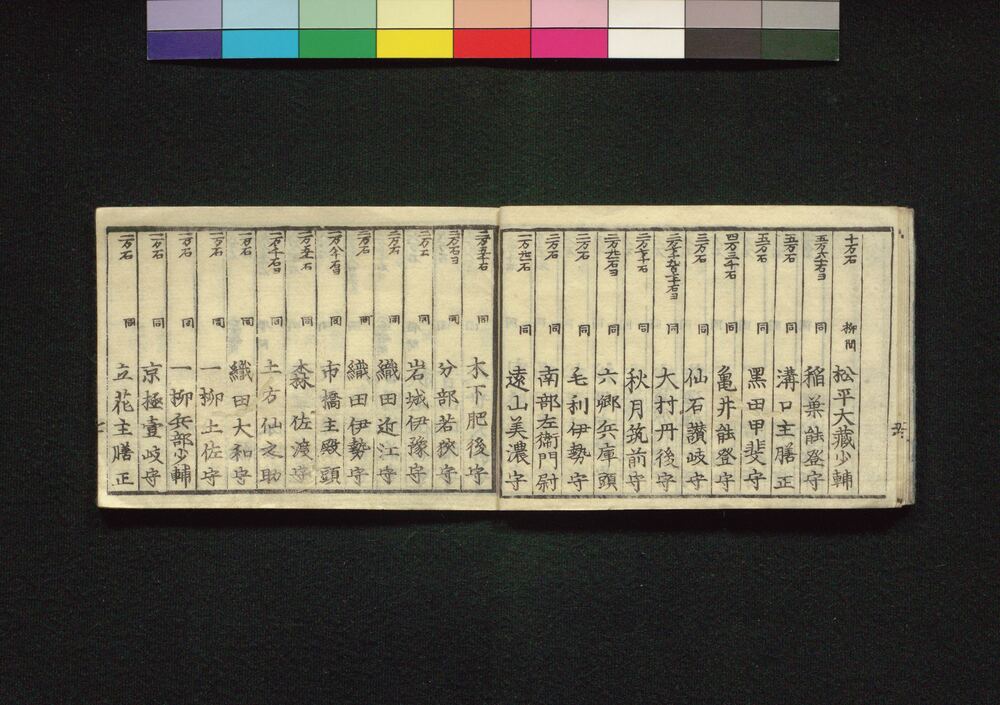 十万石 柳間 松平大蔵少輔
五万六十石ヨ 同 稲葉能登守
五万石 同 溝口主膳正
五万石 同 黒田甲斐守
四万三千石 同 亀井能登守
三万石 同 仙石讃岐守
同 大村丹後守
同 秋月筑前守
同 六郷兵庫頭
二万石 同 毛利伊勢守
二万石 同 南部左衛門尉
同 遠山美濃守
二万五千石 同 木下肥後守
同 分部若狭守
同 岩城伊豫守
二万石 同 織田近江守
二万石 同 織田伊勢守
同 市橋主殿頭
同 森佐渡守
同 土方仙之助
一万石 同 織田大和守
一万石 同 一柳土佐守
一万石 同 一柳兵部少輔
一万石 同 京極壹岐守
一万石 同 立花主膳正